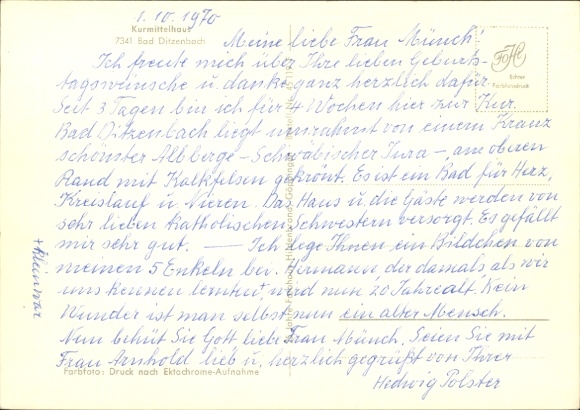 1.10.1970
Kurmittelhaus
7341 Bad Ditzenbach
Meine liebe Frau Münch!
Ich freute mich über Ihre lieben Geburts-
tagswünsche u. danke ganz herzlich dafür.
Seit 3 Tagen bin ich für 4 Wochen hier zur Kur.
Bad Ditzenbach liegt umrahmt von einem Kranz
schönster Albberge - Schwäbischer Jura -, am oberen
Rand mit Kalkfelsen gekrönt. Es ist ein Bad für Herz,
Kreislauf u. Nieren. Das Haus u. die Gäste werden von
sehr lieben katholischen Schwestern versorgt. Es gefällt
mir sehr gut. — Ich lege Ihnen ein Bildchen von
meinen 5 Enkeln bei. Hermann, der damals, als wir
uns kennen lernten, wird nun 20 Jahre alt. Kein
Wunder ist man selbst nun ein alter Mensch.
Nun behüt Sie Gott, liebe Frau Münch. Seien Sie mit
Frau Arnhold lieb u. herzlich gegrüßt von Ihrer
Hedwig Polster
+ klein war
FoHi
Echter
Farbfotodruck
Farbfoto: Druck nach Ektachrome-Aufnahme